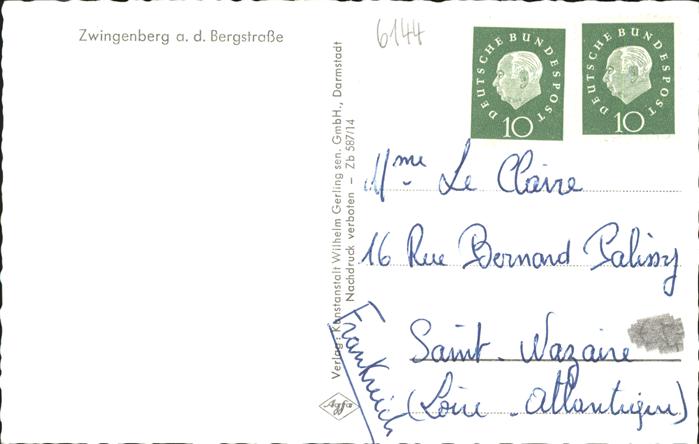 Zwingenberg a. d. Bergstraße
Verlag: Kunstanstalt Wilhelm Gerling sen. GmbH., Darmstadt
Nachdruck verboten – Zb 587/14
6144
DEUTSCHE BUNDESPOST
10
DEUTSCHE BUNDESPOST
10
Mme Le Claire
16 Rue Bernard Palissy
Saint-Nazaire
(Loire-Atlantique)
Frankreich
Agfa